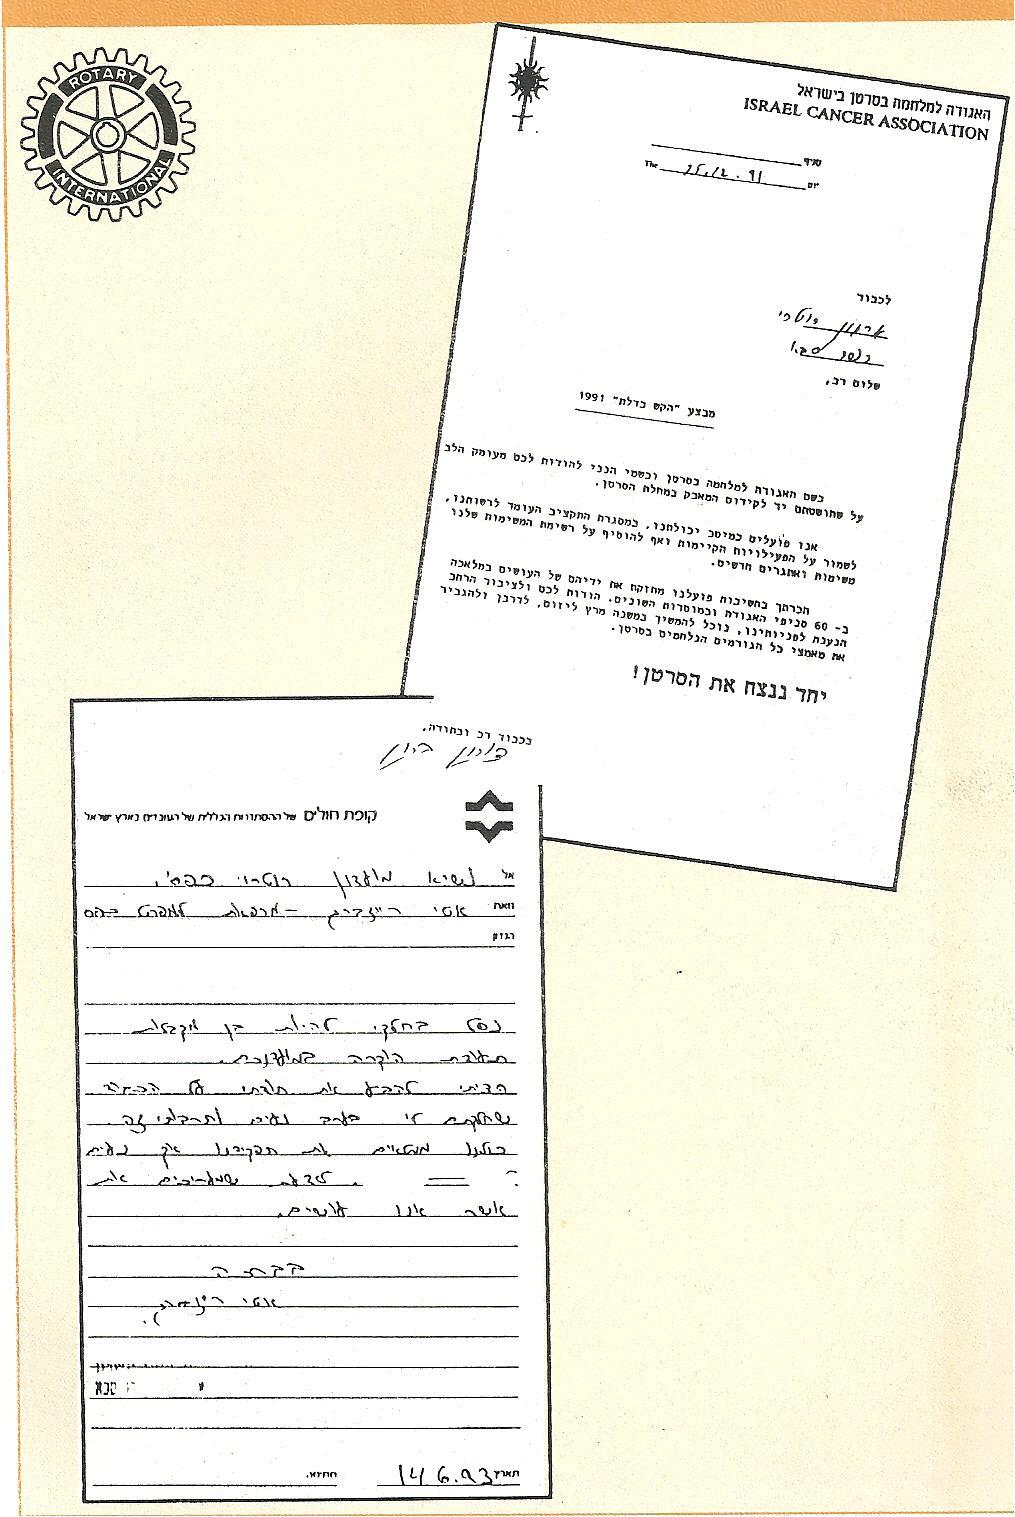 ROTARY
INTERNATIONAL
האגודה למלחמה בסרטן בישראל
ISRAEL CANCER ASSOCIATION
סניף
The 25.12.91 יום
לכבוד
ארגון רוטרי
כפר סבא
שלום רב,
מבצע "הקש בדלת" 1991
בשם האגודה למלחמה בסרטן ובשמי הנני להודות לכם מעומק הלב
על שהושטתם יד לקידום המאבק במחלת הסרטן.
אנו פועלים כמיטב יכולתנו, במסגרת התקציב העומד לרשותנו,
לשמור על הפעילויות הקיימות ואף להוסיף על רשימת המשימות שלנו
משימות ואתגרים חדשים.
הכרתך בחשיבות פועלנו מחזקת את ידיהם של העושים במלאכה
ב- 60 סניפי האגודה ובמוסדות השונים. הודות לכם ולציבור הרחב
הנענה לפניותינו, נוכל להמשיך במשנה מרץ ליזום, לדרבן ולהגביר
את מאמצי כל הגורמים הנלחמים בסרטן.
יחד ננצח את הסרטן!
בכבוד רב ובתודה,
קופת חולים של ההסתדרות הכללית של העובדים בארץ ישראל
אל נשיא מועדון רוטרי כפ"ס.
מאת אסי - מרפאת
הנדון
נפל בחלקי להיות בן מקבלות
תעודת הוקרה במועדונכם.
רציתי להביע את תודתי על הכבוד
שחלקתם לי בערב נעים ותרבותי זה.
כולנו ממלאים את תפקידנו אך נעים
לדעת שמעריכים את
אשר אנו עושים.
בברכה
אסי
סבא
תאריך 14.6.93 חתימה